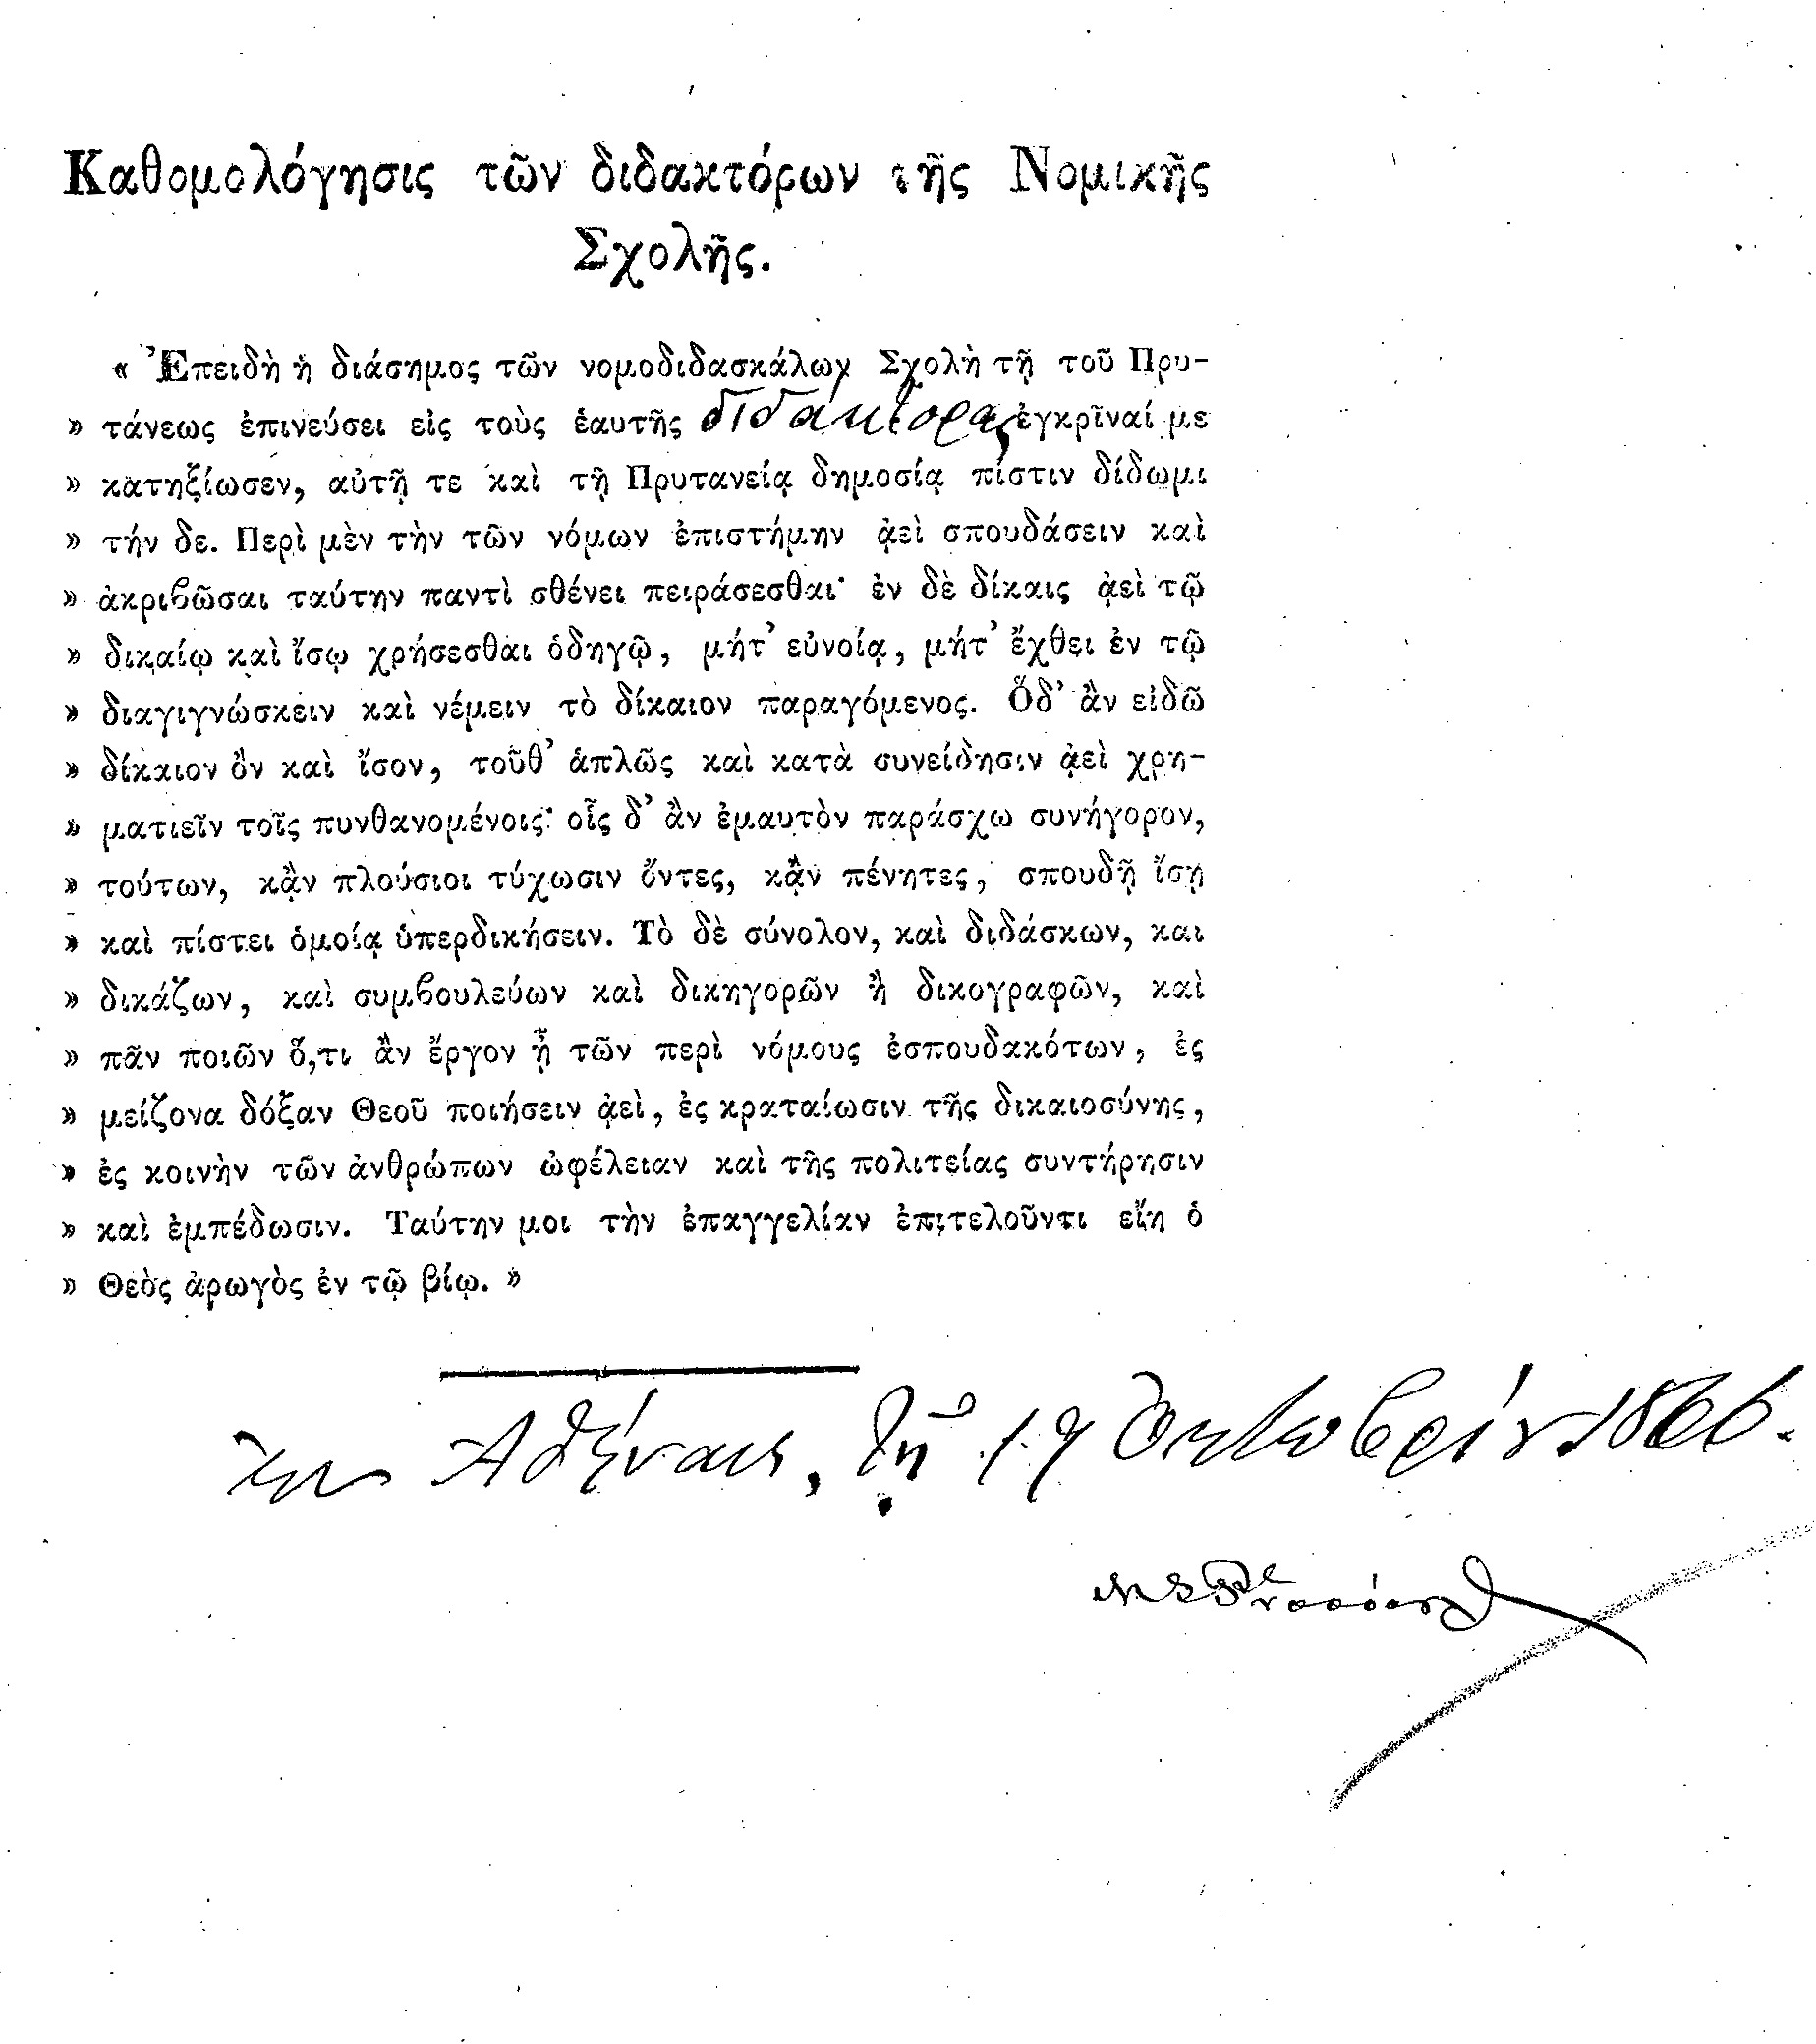 Καθομολόγησις τῶν διδακτόρων τῆς Νομικῆς
Σχολῆς.
« Ἐπειδὴ ἡ διάσημος τῶν νομοδιδασκάλων Σχολὴ τῇ τοῦ Πρυ-
» τάνεως ἐπινεύσει εἰς τοὺς ἑαυτῆς διδάκτορας ἐγκρῖναί με
» κατηξίωσεν, αὐτῇ τε καὶ τῇ Πρυτανείᾳ δημοσίᾳ πίστιν δίδωμι
» τήν δε. Περὶ μὲν τὴν τῶν νόμων ἐπιστήμην ᾀεὶ σπουδάσειν καὶ
» ἀκριβῶσαι ταύτην παντὶ σθένει πειράσεσθαι· ἐν δὲ δίκαις ᾀεὶ τῷ
» δικαίῳ καὶ ἴσῳ χρήσεσθαι ὁδηγῷ, μήτ’ εὐνοίᾳ, μήτ’ ἔχθει ἐν τῷ
» διαγιγνώσκειν καὶ νέμειν τὸ δίκαιον παραγόμενος. Ὅδ’ ἂν εἰδῶ
» δίκαιον ὂν καὶ ἴσον, τοῦθ’ ἁπλῶς καὶ κατὰ συνείδησιν ᾀεὶ χρη-
» ματιεῖν τοῖς πυνθανομένοις· οἷς δ’ ἂν ἐμαυτὸν παράσχω συνήγορον,
» τούτων, κᾂν πλούσιοι τύχωσιν ὄντες, κᾂν πένητες, σπουδῇ ἴσῃ
» καὶ πίστει ὁμοίᾳ ὑπερδικήσειν. Τὸ δὲ σύνολον, καὶ διδάσκων, και
» δικάζων, καὶ συμβουλεύων καὶ δικηγορῶν ἢ δικογραφῶν, καὶ
» πᾶν ποιῶν ὅ,τι ἂν ἔργον ᾖ τῶν περὶ νόμους ἐσπουδακότων, ἐς
» μείζονα δόξαν Θεοῦ ποιήσειν ᾀεὶ, ἐς κραταίωσιν τῆς δικαιοσύνης,
» ἐς κοινὴν τῶν ἀνθρώπων ὠφέλειαν καὶ τῆς πολιτείας συντήρησιν
» καὶ ἐμπέδωσιν. Ταύτην μοι τὴν ἐπαγγελίαν ἐπιτελοῦντι εἴη ὁ
» Θεὸς ἀρωγὸς ἐν τῷ βίῳ. »
Ἀθήναις, τῇ 19 Ὀκτωβρίου 1866.